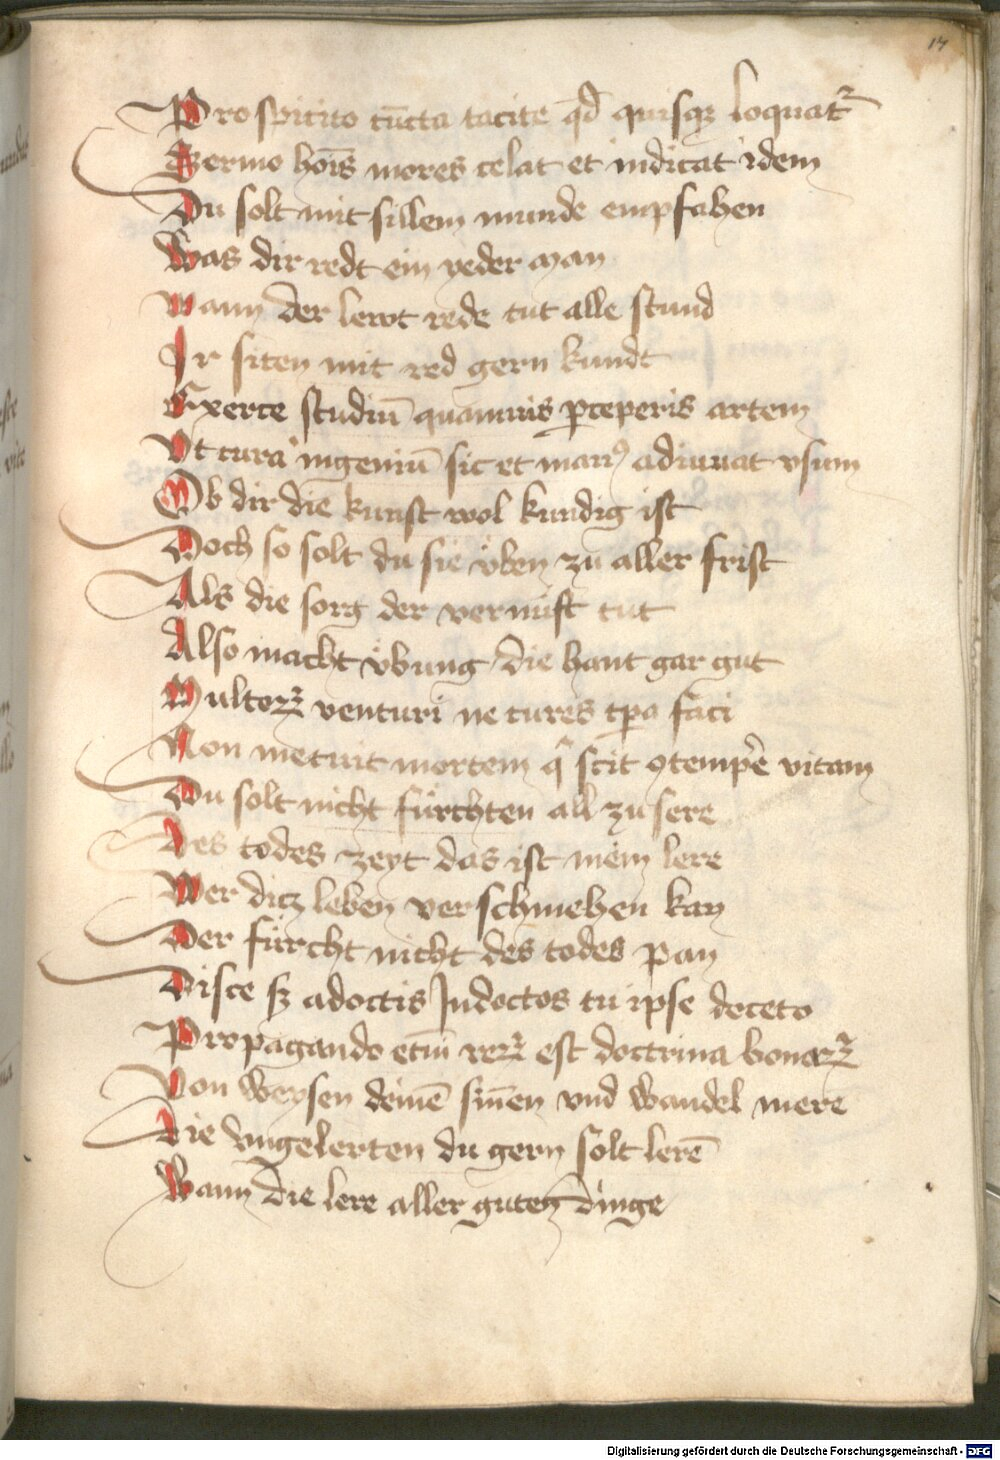 17
Prospicito cūcta tacite qd̄ quisqꝫ loquatꝛ
Sermo hoīs mores celat et indicat idem
Du solt mit stillem munde empfahen
Was dir redt ein yeder man
Wann der lewt rede tut alle stund
Ir siten mit red gern kundt
Exerce studiū quamuis ꝑceperis artem
Vt cura ingeniū sic et manꝰ adiuuat vsum
Ob dir die kunst wol kundig ist
Doch so solt du sie vͤben zu aller frist
Als die sorg der vernuft tut
Also macht vͤbung die hant gar gut
Multoꝝ venturi ne cures tꝑa faci
Non metuit mortem q̄ scit ꝯtempē̄re vitam
Du solt nicht fürchten all zu sere
Des todes zeyt das ist mein lere
Wer dicz leben verschmehen kan
Der fürcht nicht des todes pan
Disce sꝫ a doctis Indoctos tu ipse doceto
Propagando etiū reꝝ est doctrina bonaꝝ
Von weysen deinē sinnen vnd wandel mere
Die vngelerten du gern solt lerē
Wann die lere aller guten dinge
Digitalisierung gefördert durch die Deutsche Forschungsgemeinschaft - DFG